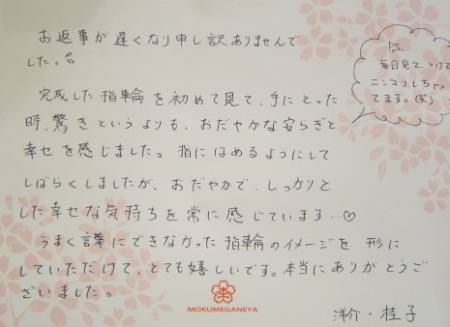 お返事が遅くなり申し訳ありませんで
した。
完成した指輪を初めて見て、手にとった
時、驚きというよりも、おだやかな安らぎと
幸せを感じました。指にはめるようにして
しばらくしましたが、おだやかで、しっかりと
した幸せな気持ちを常に感じています…♡
うまく言葉にできなかった指輪のイメージを 形に
していただけて、とても嬉しいです。本当にありがとうご
ざいました。
洋介・桂子
毎日見てつけて
ニンマリしちゃっ
てます。(笑)
MOKUMEGANEYA